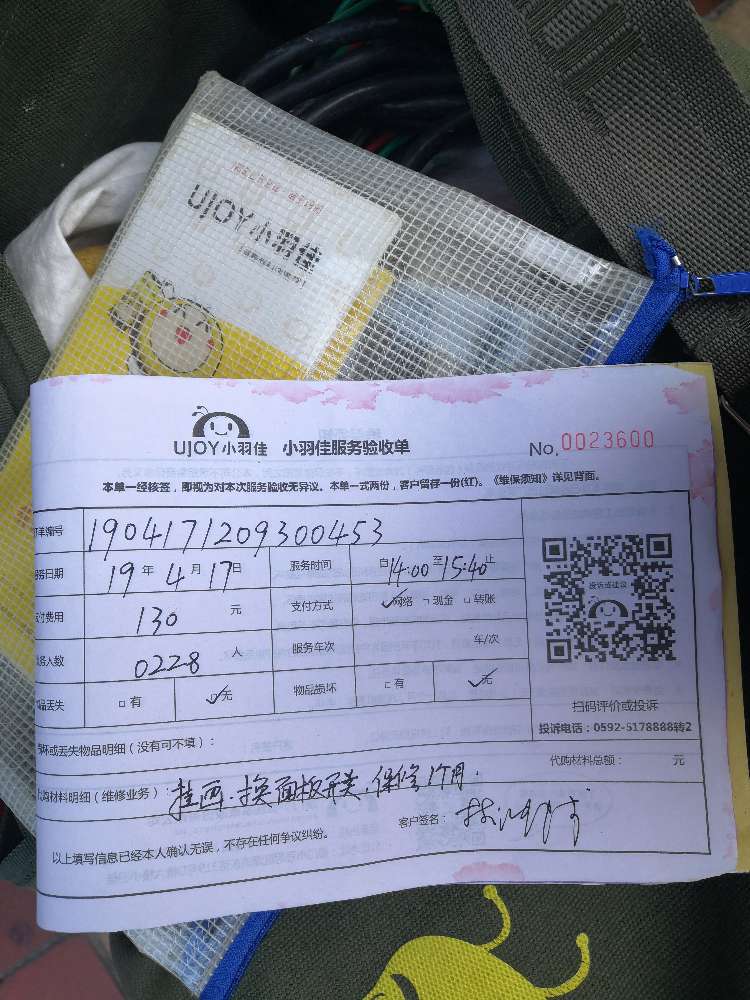 UJOY小羽佳
UJOY小羽佳 小羽佳服务验收单 No. 0023600
本单一经核签，即视为对本次服务验收无异议。本单一式两份，客户留存一份(红)。《维保须知》详见背面。
单编号 1904171209300453
务日期 19 年 4 月 17日 服务时间 自14:00至15:40止
付费用 130 元 支付方式 网络 现金 转账
务人数 0228 人 服务车次 车/次
品丢失 有 无 物品损坏 有 无
投诉或建议
扫码评价或投诉
投诉电话：0592-5178888转2
坏或丢失物品明细（没有可不填）：
代购材料总额： 元
购材料明细（维修业务）：挂画.换面板开关,保修1个月.
以上填写信息已经本人确认无误，不存在任何争议纠纷。 客户签名：